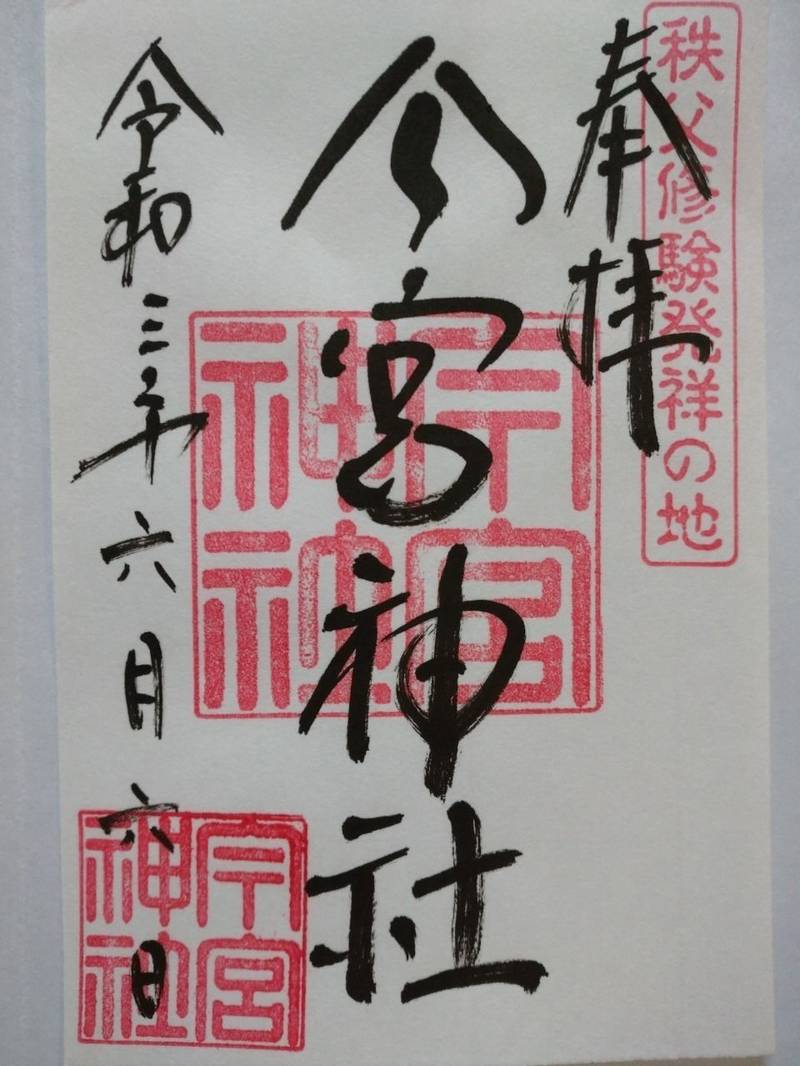 秩父修験発祥の地
奉拝
今宮神社
令和三年六月六日
今宮
神社
今宮
神社